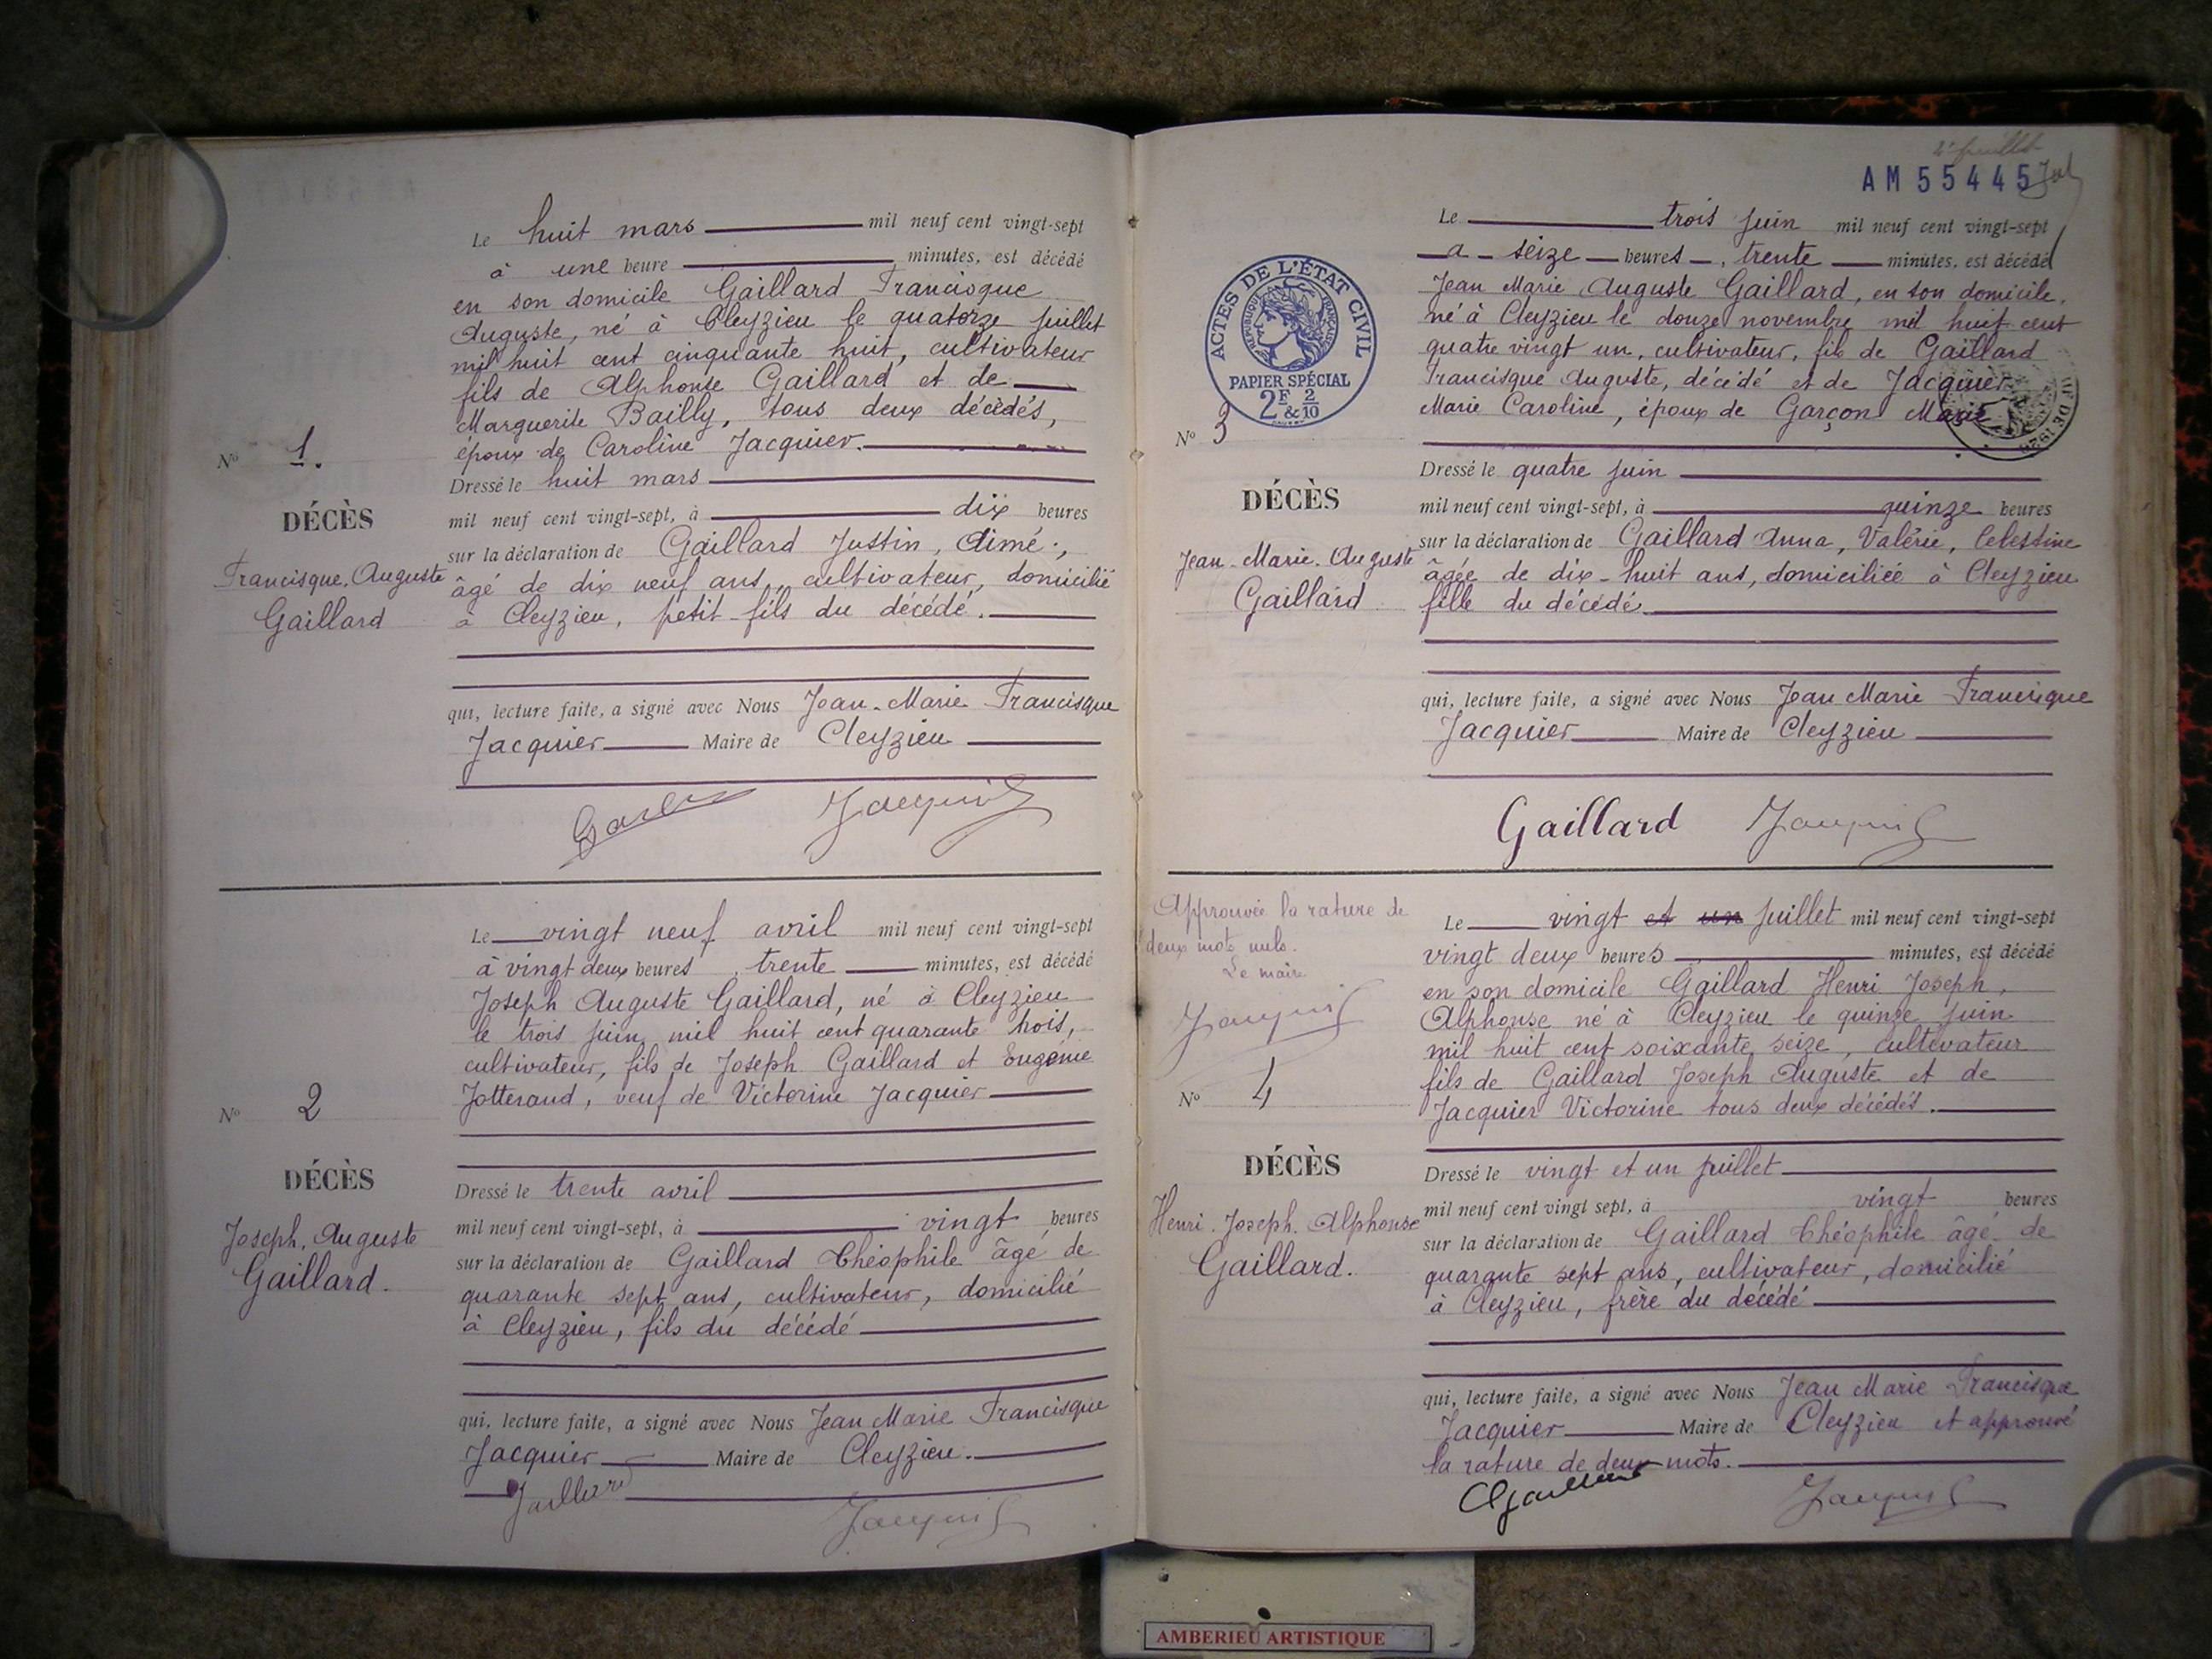 Le huit mars mil neuf cent vingt-sept
à une heure minutes, est décédé
en son domicile Gaillard Francisque
Auguste, né à Cleyzieu le quatorze juillet
mil huit cent cinquante huit, cultivateur
fils de Alphonse Gaillard et de
Marguerite Bailly, tous deux décédés,
époux de Caroline Jacquier.
Nº 1.
DÉCÈS
Francisque, Auguste
Gaillard
Dressé le huit mars
mil neuf cent vingt-sept, à dix heures
sur la déclaration de Gaillard Justin, Aimé,
âgé de dix neuf ans, cultivateur, domicilié
à Cleyzieu, petit-fils du décédé.
qui, lecture faite, a signé avec Nous Jean-Marie Francisque
Jacquier Maire de Cleyzieu
Jacquier
Le vingt neuf avril mil neuf cent vingt-sept
à vingt deux heures, trente minutes, est décédé
Joseph Auguste Gaillard, né à Cleyzieu
le trois juin mil huit cent quarante trois,
cultivateur, fils de Joseph Gaillard et Eugénie
Jotterand, veuf de Victorine Jacquier
Nº 2
DÉCÈS
Joseph, Auguste
Gaillard.
Dressé le trente avril
mil neuf cent vingt-sept, à vingt heures
sur la déclaration de Gaillard Théophile âgé de
quarante sept ans, cultivateur, domicilié
à Cleyzieu, fils du décédé
qui, lecture faite, a signé avec Nous Jean Marie Francisque
Jacquier Maire de Cleyzieu.
Gaillard
Jacquier
2e feuillet
AM 55445
ACTES DE L'ÉTAT CIVIL
RÉPUBLIQUE FRANÇAISE
PAPIER SPÉCIAL
2F 2
&10
Le trois juin mil neuf cent vingt-sept
a seize heures, trente minutes, est décédé
Jean Marie Auguste Gaillard, en son domicile,
né à Cleyzieu le douze novembre mil huit cent
quatre vingt un, cultivateur, fils de Gaillard
Francisque Auguste, décédé et de Jacquier
Marie Caroline, époux de Garçon Marie
Nº 3
DÉCÈS
Jean-Marie-Auguste
Gaillard
Dressé le quatre juin
mil neuf cent vingt-sept, à quinze heures
sur la déclaration de Gaillard Anna, Valérie, Celestine
âgée de dix-huit ans, domiciliée à Cleyzieu
fille du décédé
qui, lecture faite, a signé avec Nous Jean Marie Francisque
Jacquier Maire de Cleyzieu
Gaillard Jacquier
Approuvée la rature de
deux mots nuls.
Le maire
Jacquier
Nº 4
DÉCÈS
Henri-Joseph-Alphonse
Gaillard.
Le vingt et un juillet mil neuf cent vingt-sept
vingt deux heures minutes, est décédé
en son domicile Gaillard Henri Joseph,
Alphonse né à Cleyzieu le quinze juin
mil huit cent soixante seize, cultivateur
fils de Gaillard Joseph Auguste et de
Jacquier Victorine tous deux décédés.
Dressé le vingt et un juillet
mil neuf cent vingt sept, à vingt heures
sur la déclaration de Gaillard Théophile âgé de
quarante sept ans, cultivateur, domicilié
à Cleyzieu, frère du décédé
qui, lecture faite, a signé avec Nous Jean Marie Francisque
Jacquier Maire de Cleyzieu et approuvé
la rature de deux mots.
Gaillard
Jacquier
AMBERIEU ARTISTIQUE